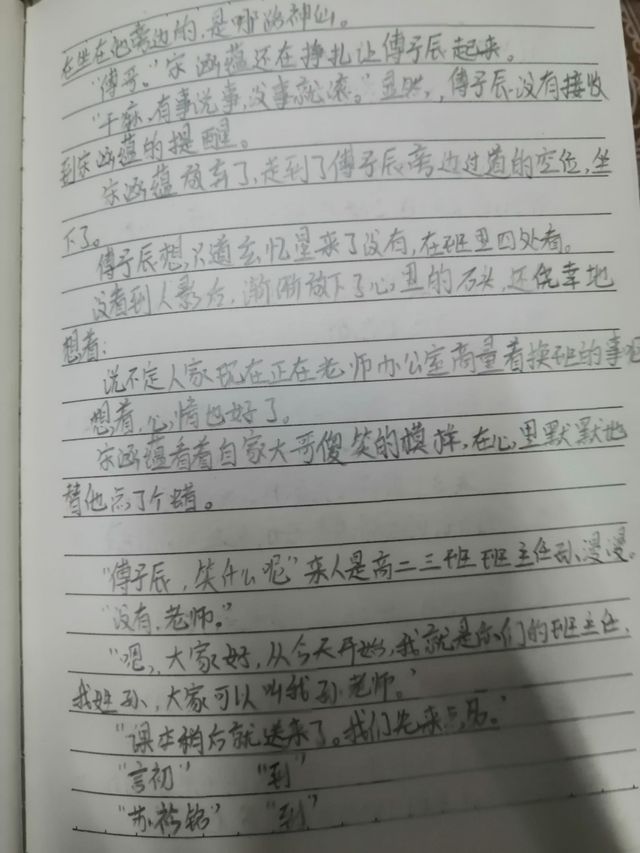 在坐在他旁边的,是哪路神仙。
“傅哥。”宋涵蕴还在挣扎让傅子辰起来。
“干麻,有事说事,没事就滚。”显然,傅子辰没有接收
到宋涵蕴的提醒。
宋涵蕴放弃了,走到了傅子辰旁边过道的空位,坐
下了。
傅子辰想,只道玄忆星来了没有,在班里四处看。
没看到人影后,渐渐放下了心里的石头,还侥幸地
想着:
说不定人家现在正在老师办公室商量着换班的事呢
想着,心情也好了。
宋涵蕴看着自家大哥傻笑的模样,在心里默默地
替他点了个蜡。
“傅子辰,笑什么呢”来人是高二三班班主任孙漫漫。
“没有,老师。”
“嗯,大家好,从今天开始,我就是你们的班主任,
我姓孙,大家可以叫我孙老师。”
“课本稍后就送来了。我们先来点名。”
“言初” “到”
“苏铭” “到”